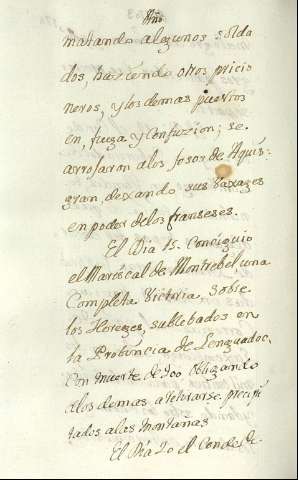 Año
matando algunos solda
dos, haziendo otros pricio
neros, y los demas puestos
en, fuga y confuzion; se.
arrojaron a los fosos de Aquis-
gran, dexando sus vaxages
en poder de los franseses.
El Dia 15. Consiguio
el Mariscal de Montrebel, una
Completa Victoria, sobre
los Hereges, sublebados en
la Probincia de Lenguadoc,
con muerte de 900 obligando
a los demas a retirarse precipi
tados a las montañas
El Dia 20 el Conde de